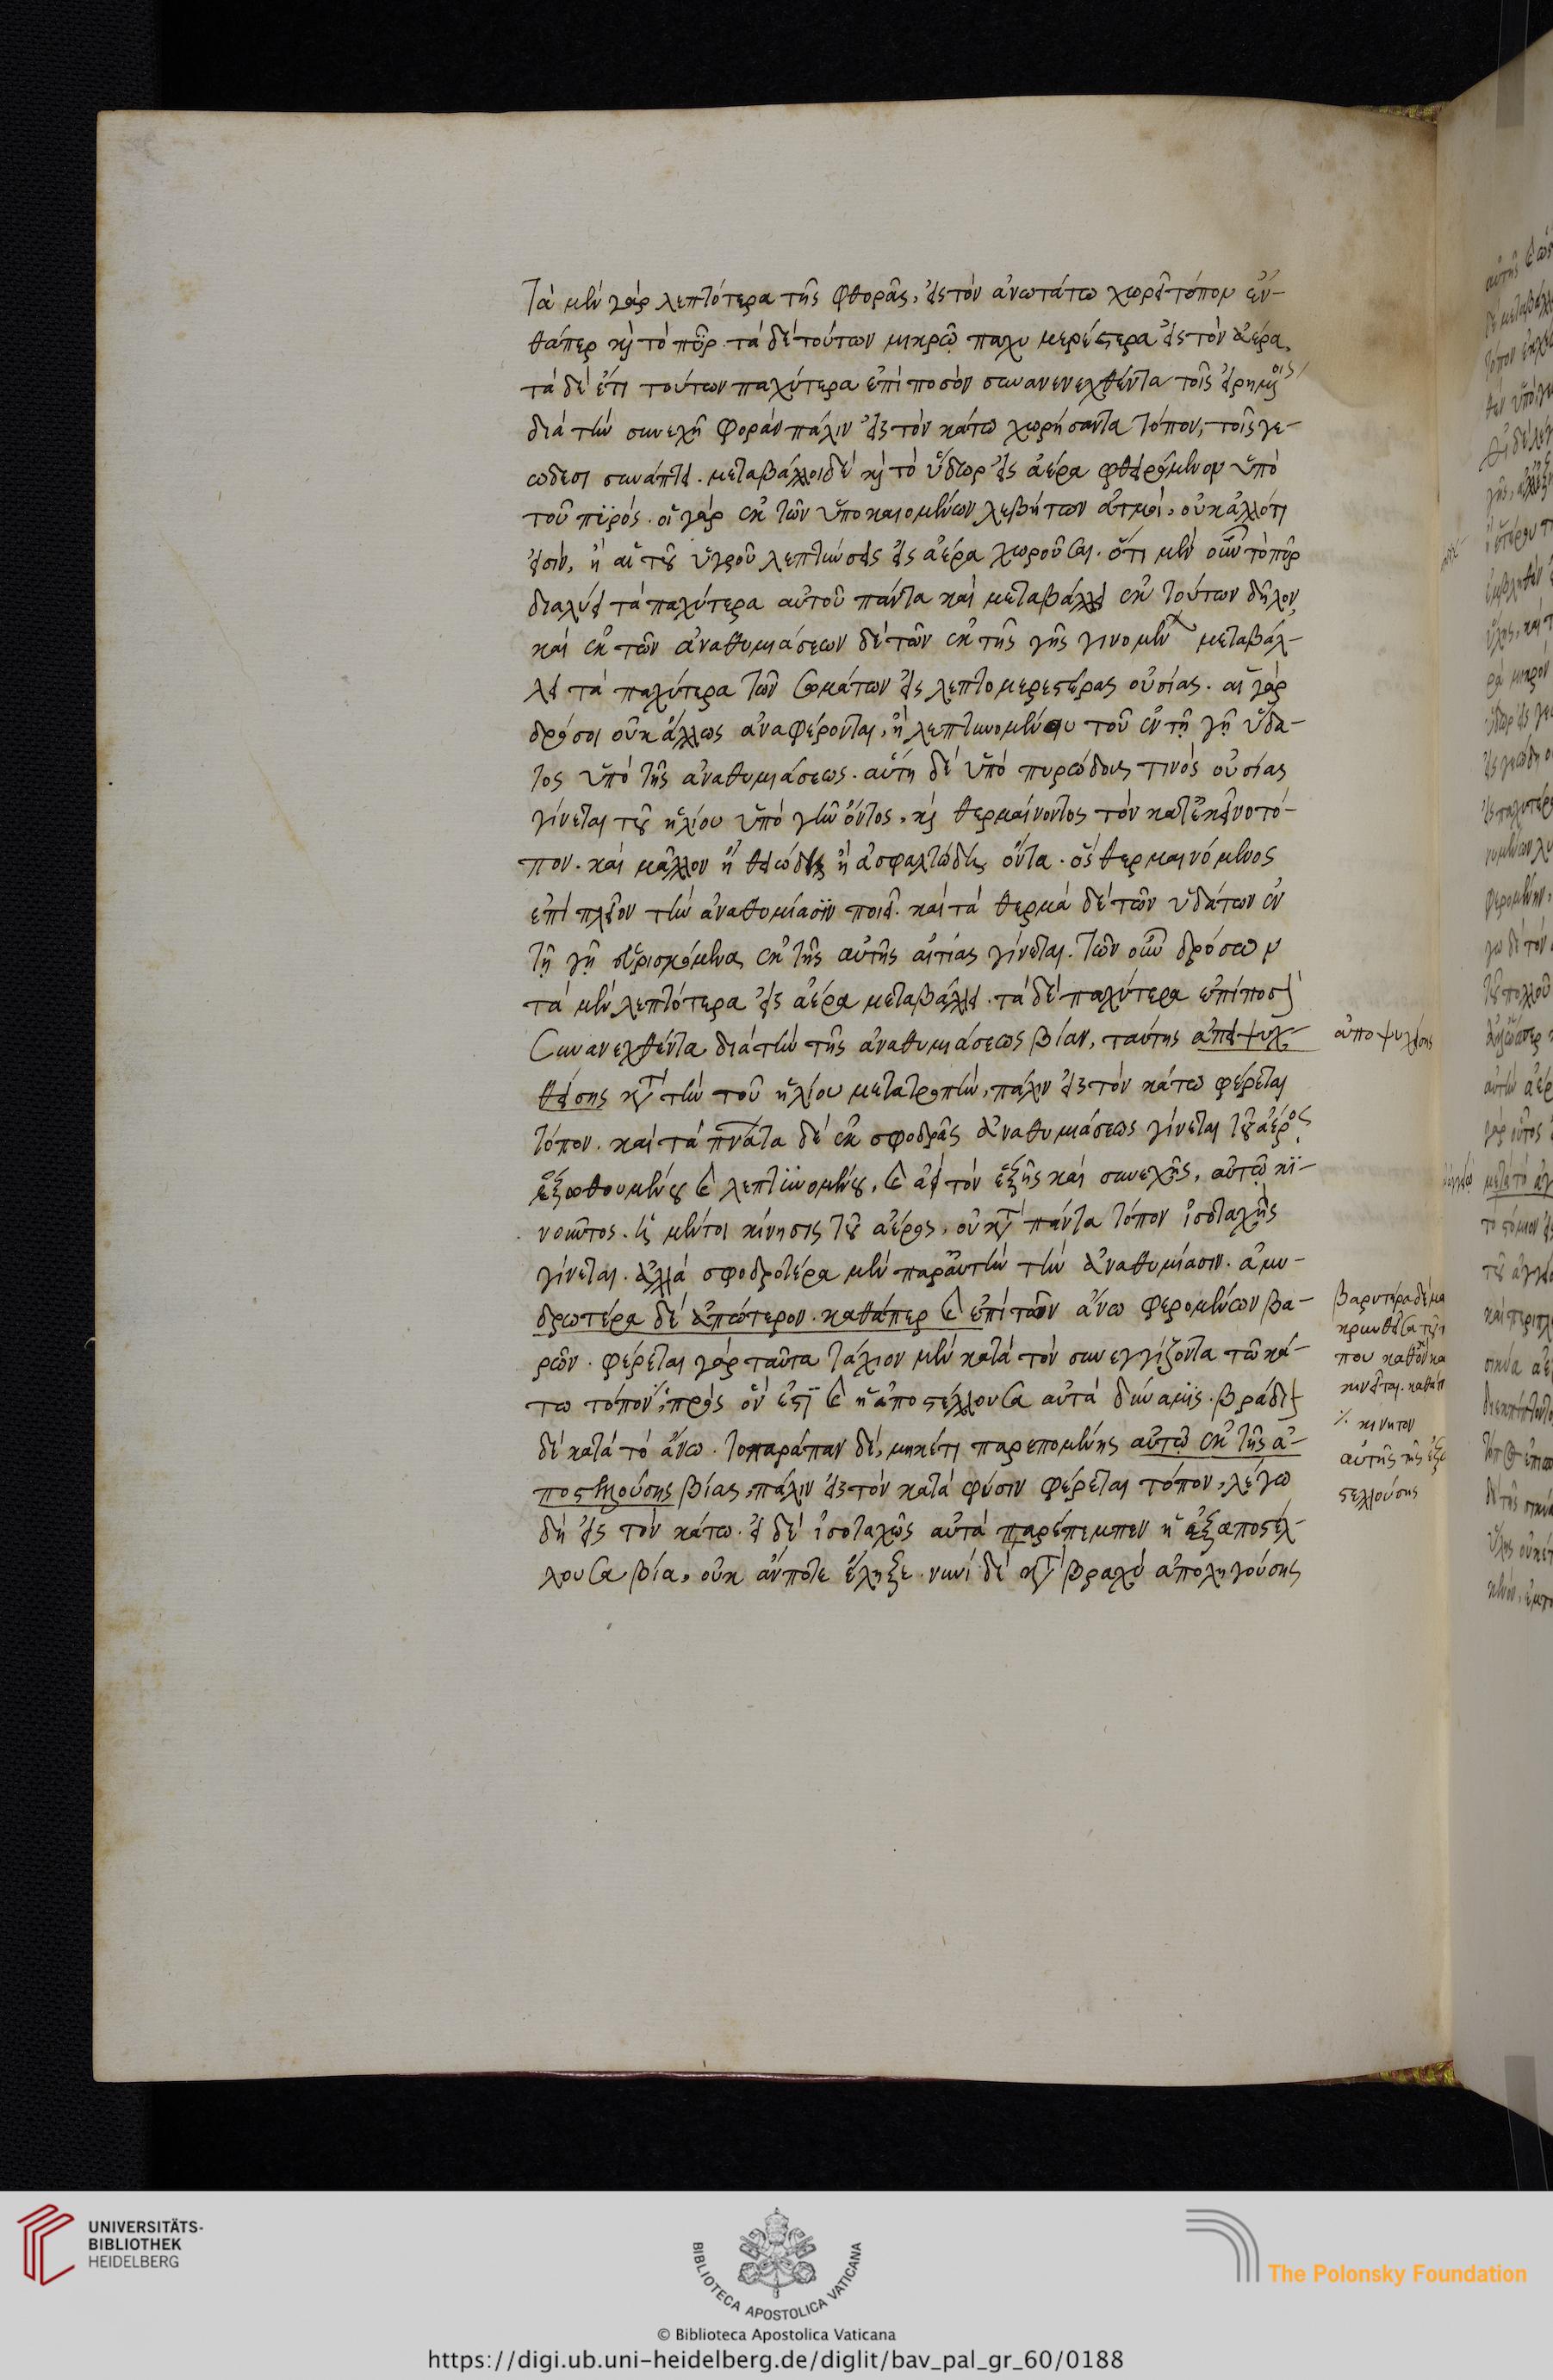 Τὰ μὲν γὰρ λεπτότερα τῆς φθορᾶς, εἰς τὸν ἀνωτάτω χωρεῖ τόπον ἐν-
θάπερ κὶ τὸ πῦρ. τὰ δὲ τούτων μικρῷ παχυμερέστερα εἰς τὸν ἀέρα,
τὰ δὲ ἔτι τούτων παχύτερα ἐπὶ ποσὸν συνανενεχθέντα τοῖς εἰρημένοις
διὰ τὴν συνεχῆ φορὰν πάλιν εἰς τὸν κάτω χωρήσαντα τόπον, τοῖς γε-
ώδεσι συνάπτει. μεταβάλλοι δὲ κὶ τὸ ὕδωρ εἰς ἀέρα φθειρόμενον ὑπὸ
τοῦ πυρός. οἱ γὰρ ἐκ τῶν ὑποκαιομένων λεβήτων ἀτμοὶ, οὐκ ἄλλό τι
εἰσὶν, ἢ αἱ τοῦ ὑγροῦ λεπτύνσεις εἰς ἀέρα χωροῦσαι. ὅτι μὲν οὖν τὸ πῦρ
διαλύει τὰ παχύτερα αὐτοῦ πάντα καὶ μεταβάλλει ἐκ τούτων δῆλον,
καὶ ἐκ τῶν ἀναθυμιάσεων δὲ τῶν ἐκ τῆς γῆς γινομένων μεταβάλ-
λει τὰ παχύτερα τῶν σωμάτων εἰς λεπτομερεστέρας οὐσίας. αἱ γὰρ
δρόσοι οὐκ ἄλλως ἀναφέρονται, ἢ λεπτυνομένου τοῦ ἐν τῇ γῇ ὕδα-
τος ὑπὸ τῆς ἀναθυμιάσεως. αὕτη δὲ ὑπὸ πυρώδους τινὸς οὐσίας
γίνεται τοῦ ἡλίου ὑπὸ γῆν ὄντος, κὶ θερμαίνοντος τὸν κατ' ἐκεῖνο τό-
πον. καὶ μᾶλλον ἢ θειώδη ἢ ἀσφαλτώδη ὄντα. ὃς θερμαινόμενος
ἐπὶ πλεῖον τὴν ἀναθυμίασιν ποιεῖ. καὶ τὰ θερμὰ δὲ τῶν ὑδάτων ἐν
τῇ γῇ εὑρισκόμενα, ἐκ τῆς αὐτῆς αἰτίας γίνεται. τῶν οὖν δρόσων
τὰ μὲν λεπτότερα εἰς ἀέρα μεταβάλλει. τὰ δὲ παχύτερα ἐπὶ ποσὸν
συνανεχθέντα διὰ τὴν τῆς ἀναθυμιάσεως βίαν, ταύτης ἀπεψυχ-
θείσης κατὰ τὴν τοῦ ἡλίου μετατροπὴν, πάλιν εἰς τὸν κάτω φέρεται
τόπον. καὶ τὰ πνάτα δὲ ἐκ σφοδρᾶς ἀναθυμιάσεως γίνεται τοῦ ἀέρος
ἐξωθουμένου καὶ λεπτυνομένου, καὶ ἀεὶ τὸν ἑξῆς καὶ συνεχῆς, αὐτῷ κι-
νοῦντος. ἡ μέντοι κίνησις τοῦ ἀέρος, οὐ κατὰ πάντα τόπον ἰσοταχὴς
γίνεται. ἀλλὰ σφοδροτέρα μὲν παρ' αὐτὴν τὴν ἀναθυμίασιν. ἀμυ-
δρωτέρα δὲ ἀπώτερον. καθάπερ καὶ ἐπὶ τῶν ἄνω φερομένων βα-
ρῶν. φέρεται γὰρ ταῦτα τάχιον μὲν κατὰ τὸν συνεγγίζοντα τῶ κά-
τω τόπον ⁒ πρὸς ὃν ἐστὶ καὶ ἡ ἀποστέλλουσα αὐτὰ δύναμις. βράδιον
δὲ κατὰ τὸ ἄνω. τοπαράπαν δὲ, μηκέτι παρεπομένης αὐτῷ ἐκ τῆς ἀ-
ποστελλούσης βίας, πάλιν εἰς τὸν κατὰ φύσιν φέρεται τόπον, λέγω
δὴ εἰς τὸν κάτω. εἰ δὲ ἰσοταχῶς αὐτὰ παρέπεμπεν ἡ ἐξαποστέλ-
λουσα βία, οὐκ ἄν ποτε ἔληξε. νυνὶ δὲ κατὰ βραχὺ ἀποληγούσης
ἀποψυχείσης
βαρυτέρα δὲ μα
κρυνθεῖσα τοῦ τ
που καθ' ὃν κα
κινεῖται. καθάπ
⁒ κινητον
αὐτῆς τῆς ἐξα
στελλούσης
UNIVERSITÄTS-
BIBLIOTHEK
HEIDELBERG
BIBLIOTECA APOSTOLICA VATICANA
The Polonsky Foundation
© Biblioteca Apostolica Vaticana
https://digi.ub.uni-heidelberg.de/diglit/bav_pal_gr_60/0188